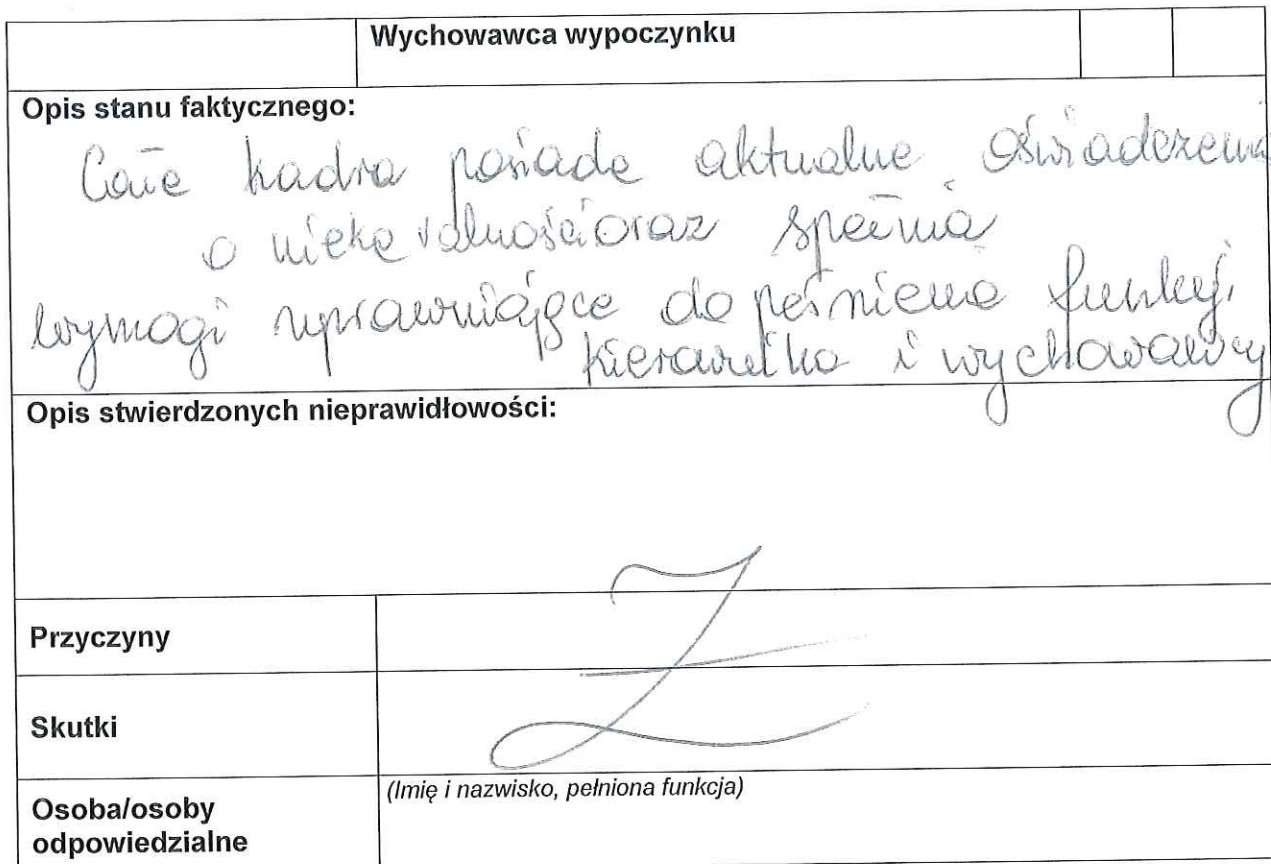 Wychowawca wypoczynku
Opis stanu faktycznego:
Cała kadra posiada aktualne oświadczenia
o niekaralności oraz spełnia
wymogi uprawniające do pełnienia funkcji
kierownika i wychowawcy
Opis stwierdzonych nieprawidłowości:
Przyczyny
Skutki
Osoba/osoby
odpowiedzialne
(Imię i nazwisko, pełniona funkcja)